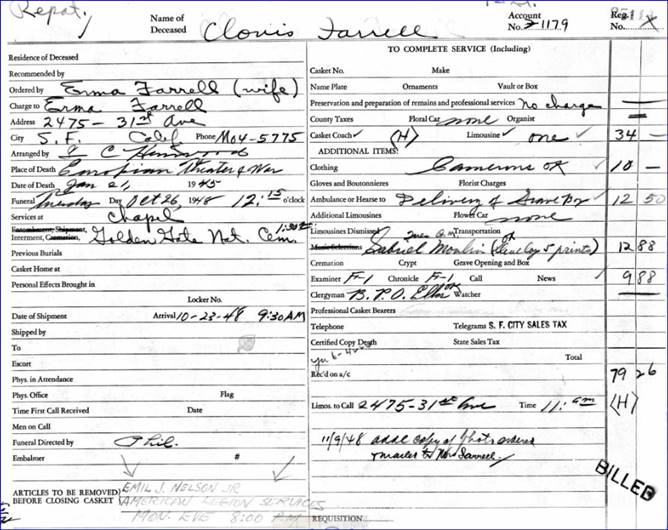 Repat.
Name of Deceased Clovis Farrell Account No. 1179 Reg. No. X
Residence of Deceased
Recommended by
Ordered by Erma Farrell (wife)
Charge to Erma Farrell
Address 2475 - 31st Ave
City S.F. Calif Phone MO4-5775
Arranged by
Place of Death European Theater of War
Date of Death Jan 21, 1945
Funeral Tuesday Day Oct 26, 1948 12:15 o'clock
Services at Chapel
Entombment, Shipment, 1:30
Interment, Cremation, Golden Gate Nat. Cem.
Previous Burials
Casket Home at
Personal Effects Brought in
Locker No.
Date of Shipment Arrival 10-23-48 9:30 AM
Shipped by
To
Escort
Phys. in Attendance
Phys. Office Flag
Time First Call Received Date
Men on Call
Funeral Directed by Phil.
Embalmer #
ARTICLES TO BE REMOVED BEFORE CLOSING CASKET
EMIL J. NELSON JR
AMERICAN LEGION SERVICES
MON. EVE 8:00 PM
TO COMPLETE SERVICE (Including)
Casket No. Make
Name Plate Ornaments Vault or Box
Preservation and preparation of remains and professional services No charge —
County Taxes Floral Car none Organist —
Casket Coach ✓ (H) Limousine ✓ one ✓ 34 —
ADDITIONAL ITEMS:
Clothing Camerons OK ✓ 10 —
Gloves and Boutonnieres Florist Charges
Ambulance or Hearse to Delivery of Grave Box ✓ 12 50
Additional Limousines Flower Car none
Limousines Dismissed Transportation
Music Selections Gabriel Moulin (5 prints) 12 88
Cremation Crypt Grave Opening and Box
Examiner F-1 Chronicle F-1 Call News ✓ 9 88
Clergyman B.P.O. Elks OK Watcher —
Professional Casket Bearers
Telephone Telegrams S. F. CITY SALES TAX
Certified Copy Death State Sales Tax
Total
Rec'd on a/c 79 26
Limos. to Call 2475-31st Ave Time 11: AM (H)
11/9/48 addl copy of photo ordered
mailed to Mrs Farrell.
BILLED
REQUISITION